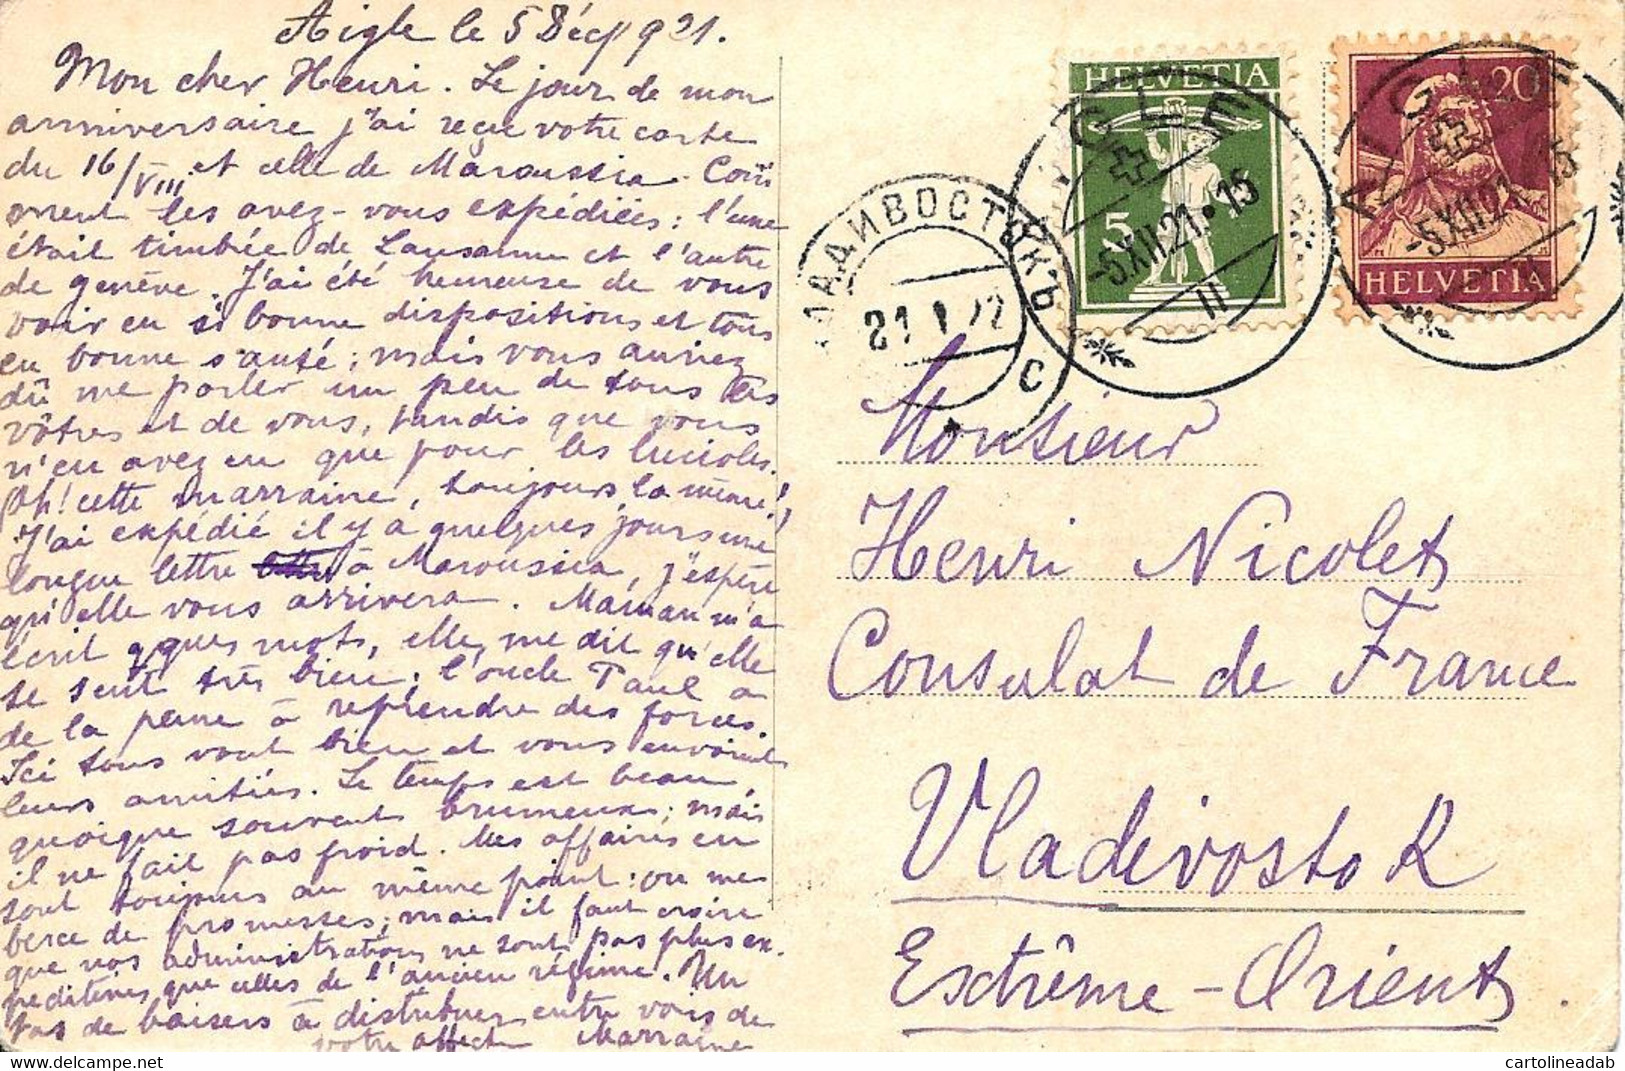 Aigle le 5 Déc/921.
Mon cher Henri. Le jour de mon
anniversaire j'ai reçu votre carte
du 16/VIII et celle de Maroussia. Com
ment les avez-vous expédiées: l'une
était timbrée de Lausanne et l'autre
de genève. J'ai été heureuse de vous
voir en si bonne dispositions et tous
en bonne santé; mais vous auriez
dû me parler un peu de tous les
vôtres et de vous, tandis que vous
n'en avez eu que pour les lucioles.
Oh! cette marraine, toujours la même!
J'ai expédié il y a quelques jours une
longue lettre à Maroussia, j'espère
qu'elle vous arrivera. Maman m'a
écrit qques mots, elle me dit qu'elle
se sent très bien; l'oncle Paul a
de la peine à reprendre des forces.
Ici tous vont bien et vous envoient
leurs amitiés. Le temps est beau,
quoique souvent brumeux; mais
il ne fait pas froid. Mes affaires en
sont toujours au même point: on me
berce de promesses; mais il faut croire
que nos administrations ne sont pas plus ex-
peditives que celles de l'ancien régime. Un
tas de baisers à distribuer entre vous de
votre affect Marraine
HELVETIA
5
20
HELVETIA
AIGLE
-5.XII.21•15
II
AIGLE
-5.XII.21 15
ВЛАДИВОСТОКЪ
21 1 22
С
Monsieur
Henri Nicolet
Consulat de France
Vladivostok
Extrême-Orient.
cartolineadab